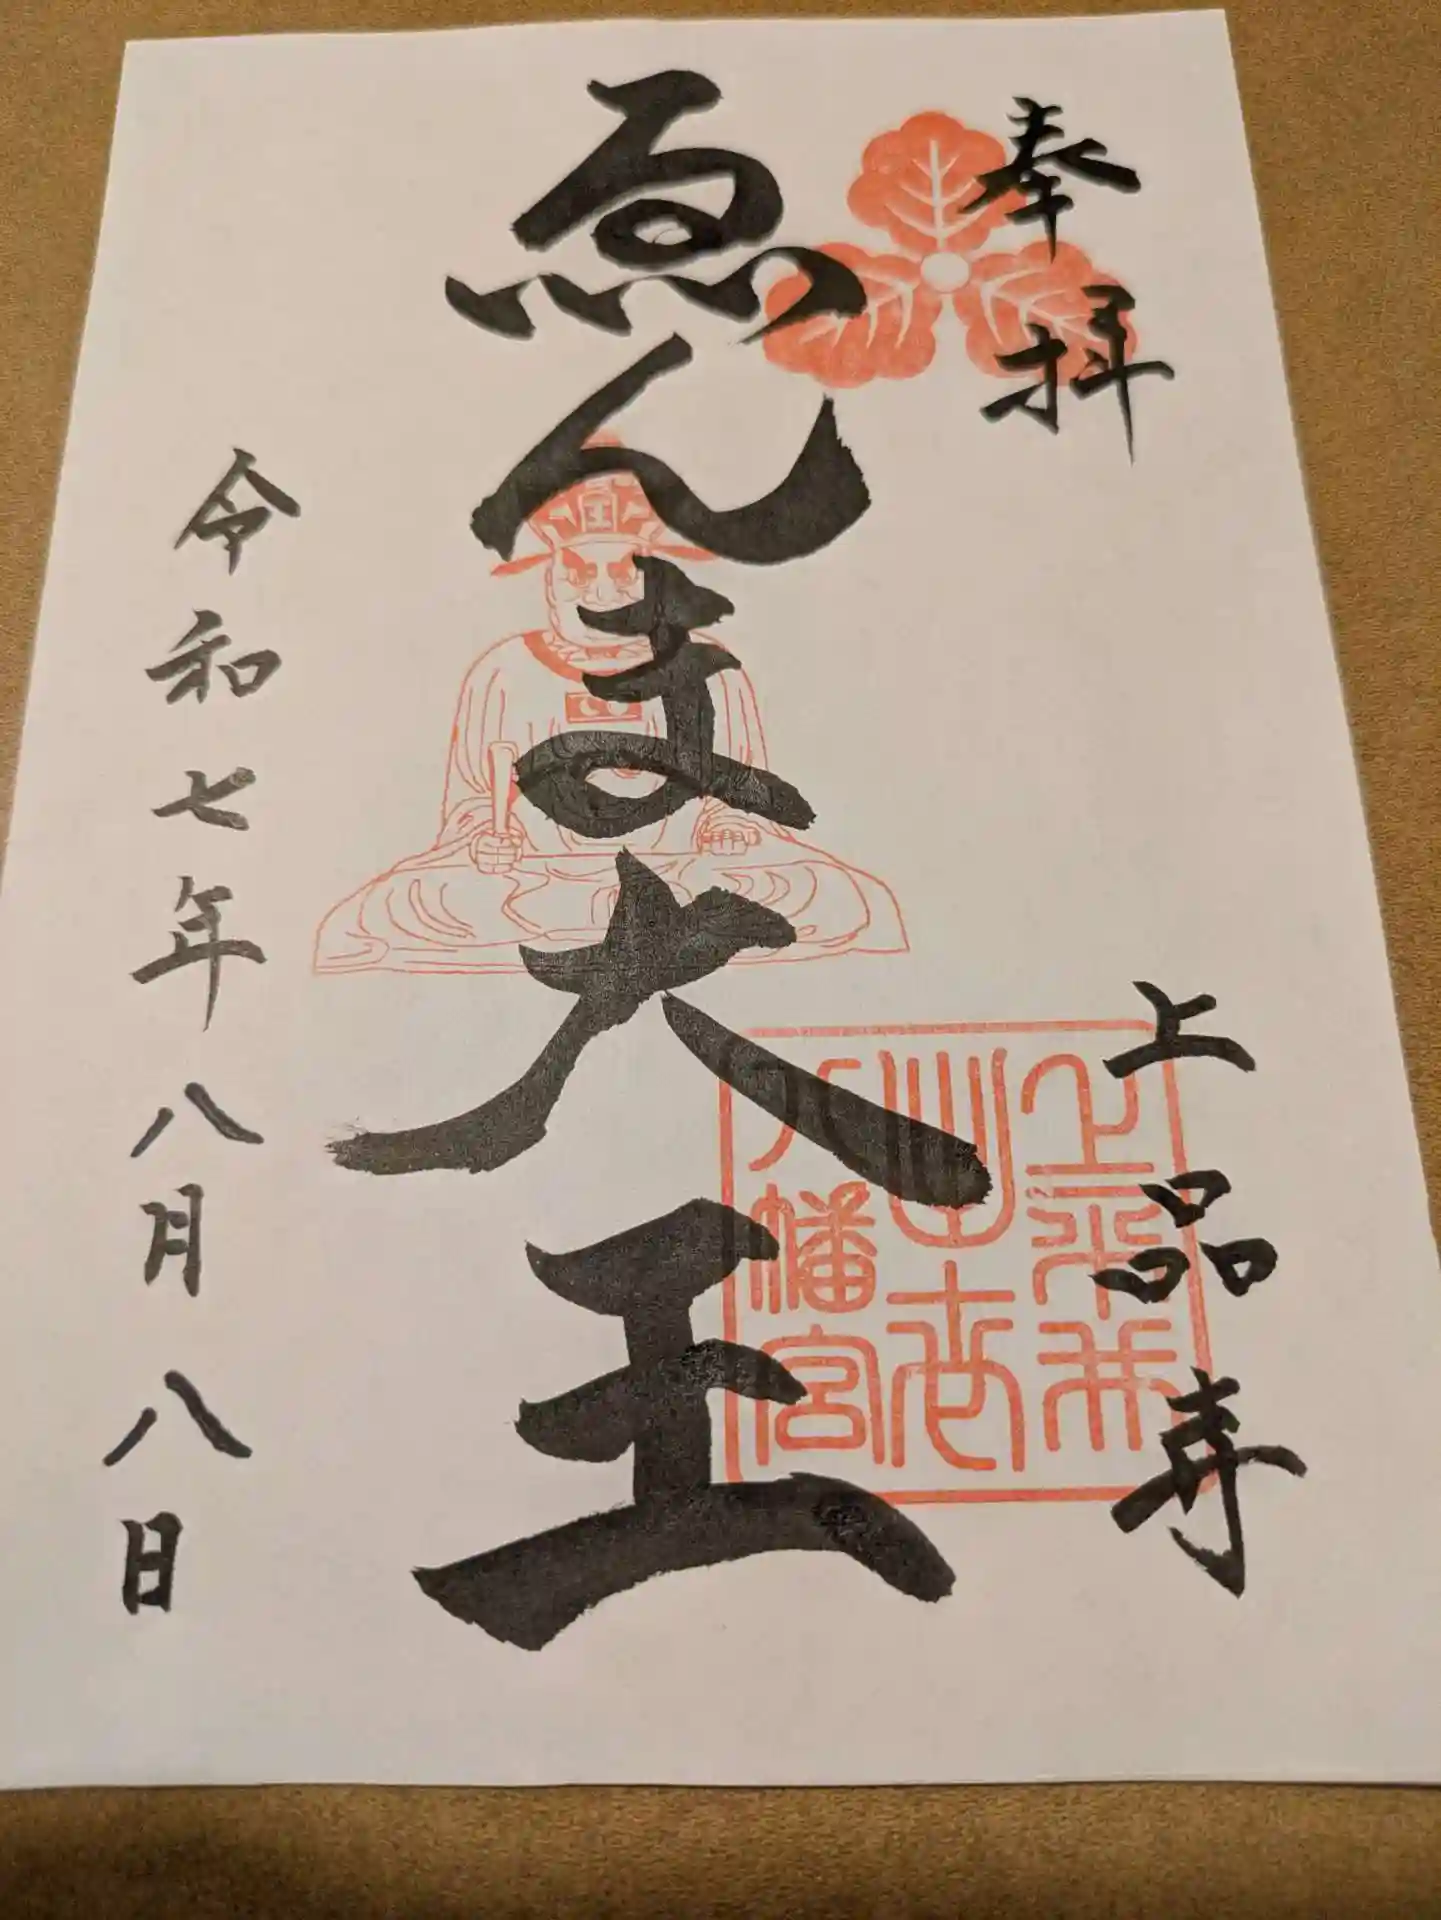 奉拝
上品寺
ゑんま大王
令和七年八月八日
王
八幡宮